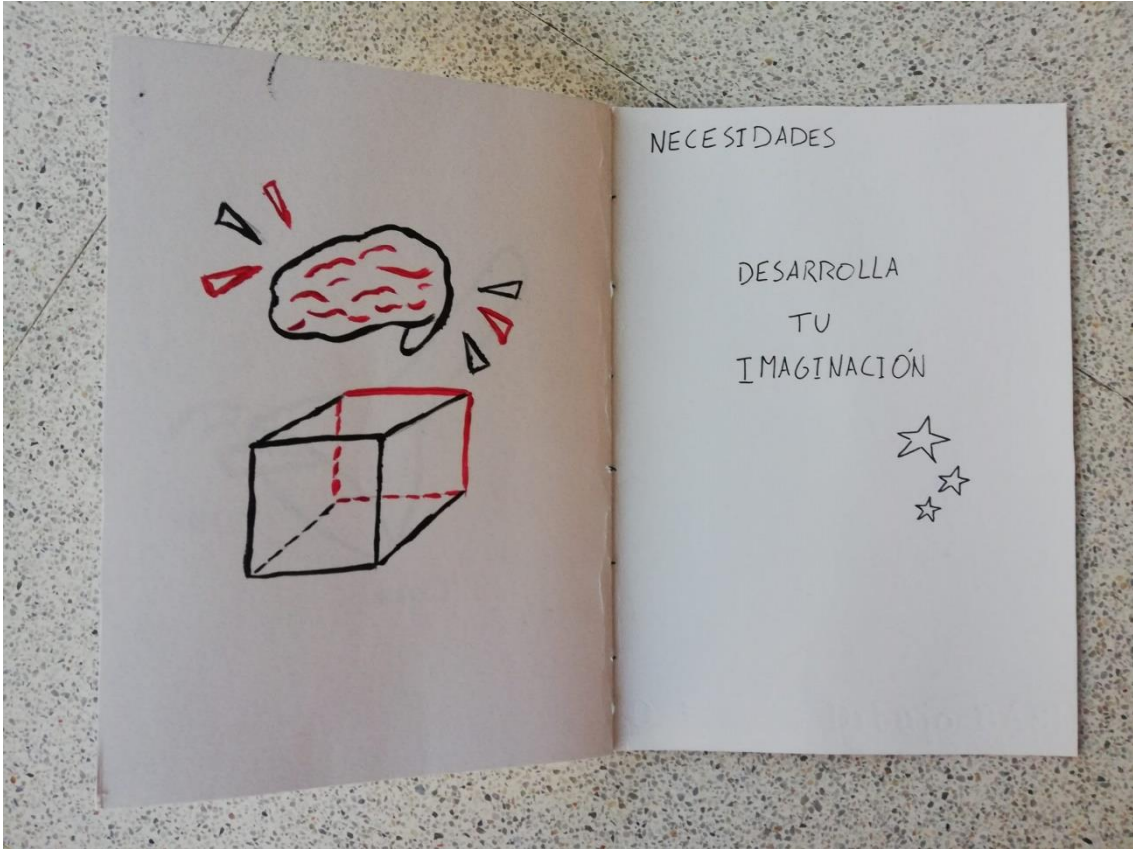 NECESIDADES
DESARROLLA
TU
IMAGINACIÓN